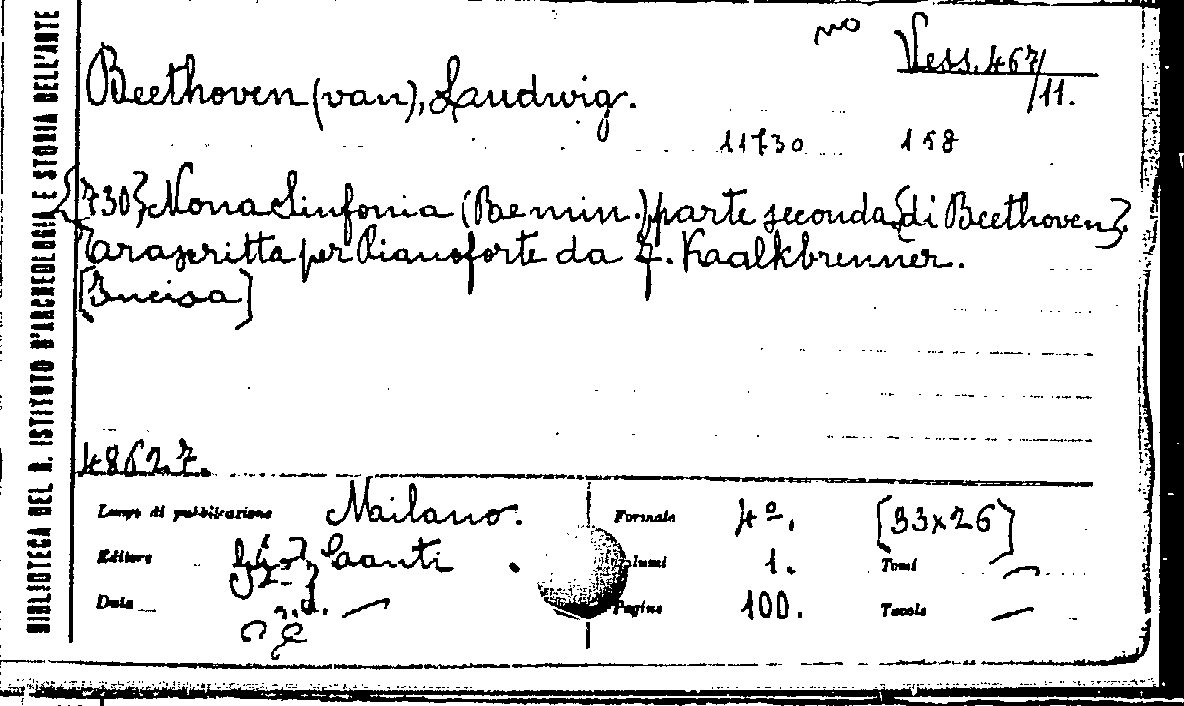 BIBLIOTECA DEL R. ISTITUTO D'ARCHEOLOGIA E STORIA DELL'ARTE
no
Vess. 467/11.
Beethoven (van), Laudwig.
11730 158
{730} Nona Sinfonia (Re min.) parte seconda {di Beethoven}.
Trascritta per Pianoforte da F. Kaalkbrenner.
[Incisa]
48627.
Luogo di pubblicazione Mailano. Formato 4º. [33x26]
Editore Canti Volumi 1. Tomi —
Data s.a. — Pagine 100. Tavole —